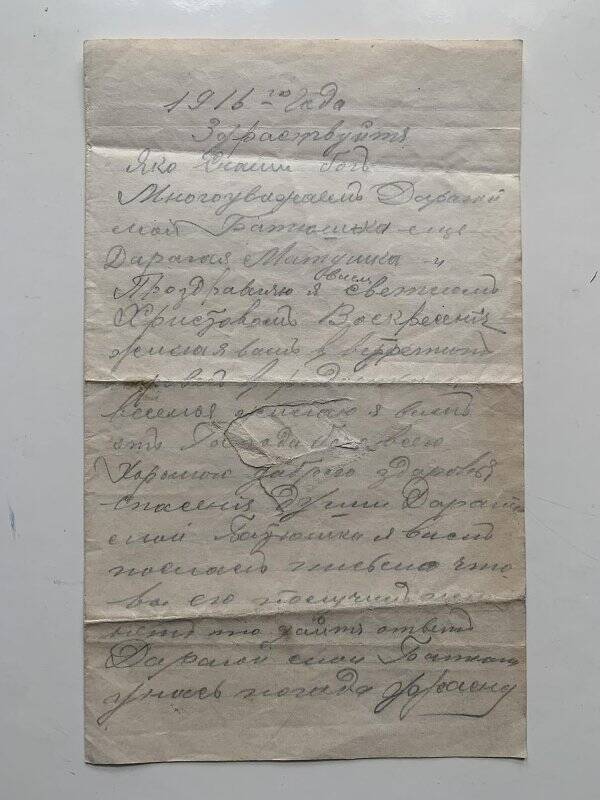 1916 го Года
Здраствуйтя
Яко Снами богъ
Многоуважаемъ Дарагой
мой Батюшка еще
Дарагая Матушка и
Проздравляю я Светлымъ
Христовомъ Воскресения
желая вамъ встретить
веселья желаю я вамъ
отъ Господа бога всего
Харошаго добраго здаровья
спасения души Дарагой
мой Батюшка я вамъ
послалъ письмо что
вы его получили или
нетъ то дайтя ответъ
Дарагой мой Батюшка
унасъ погода